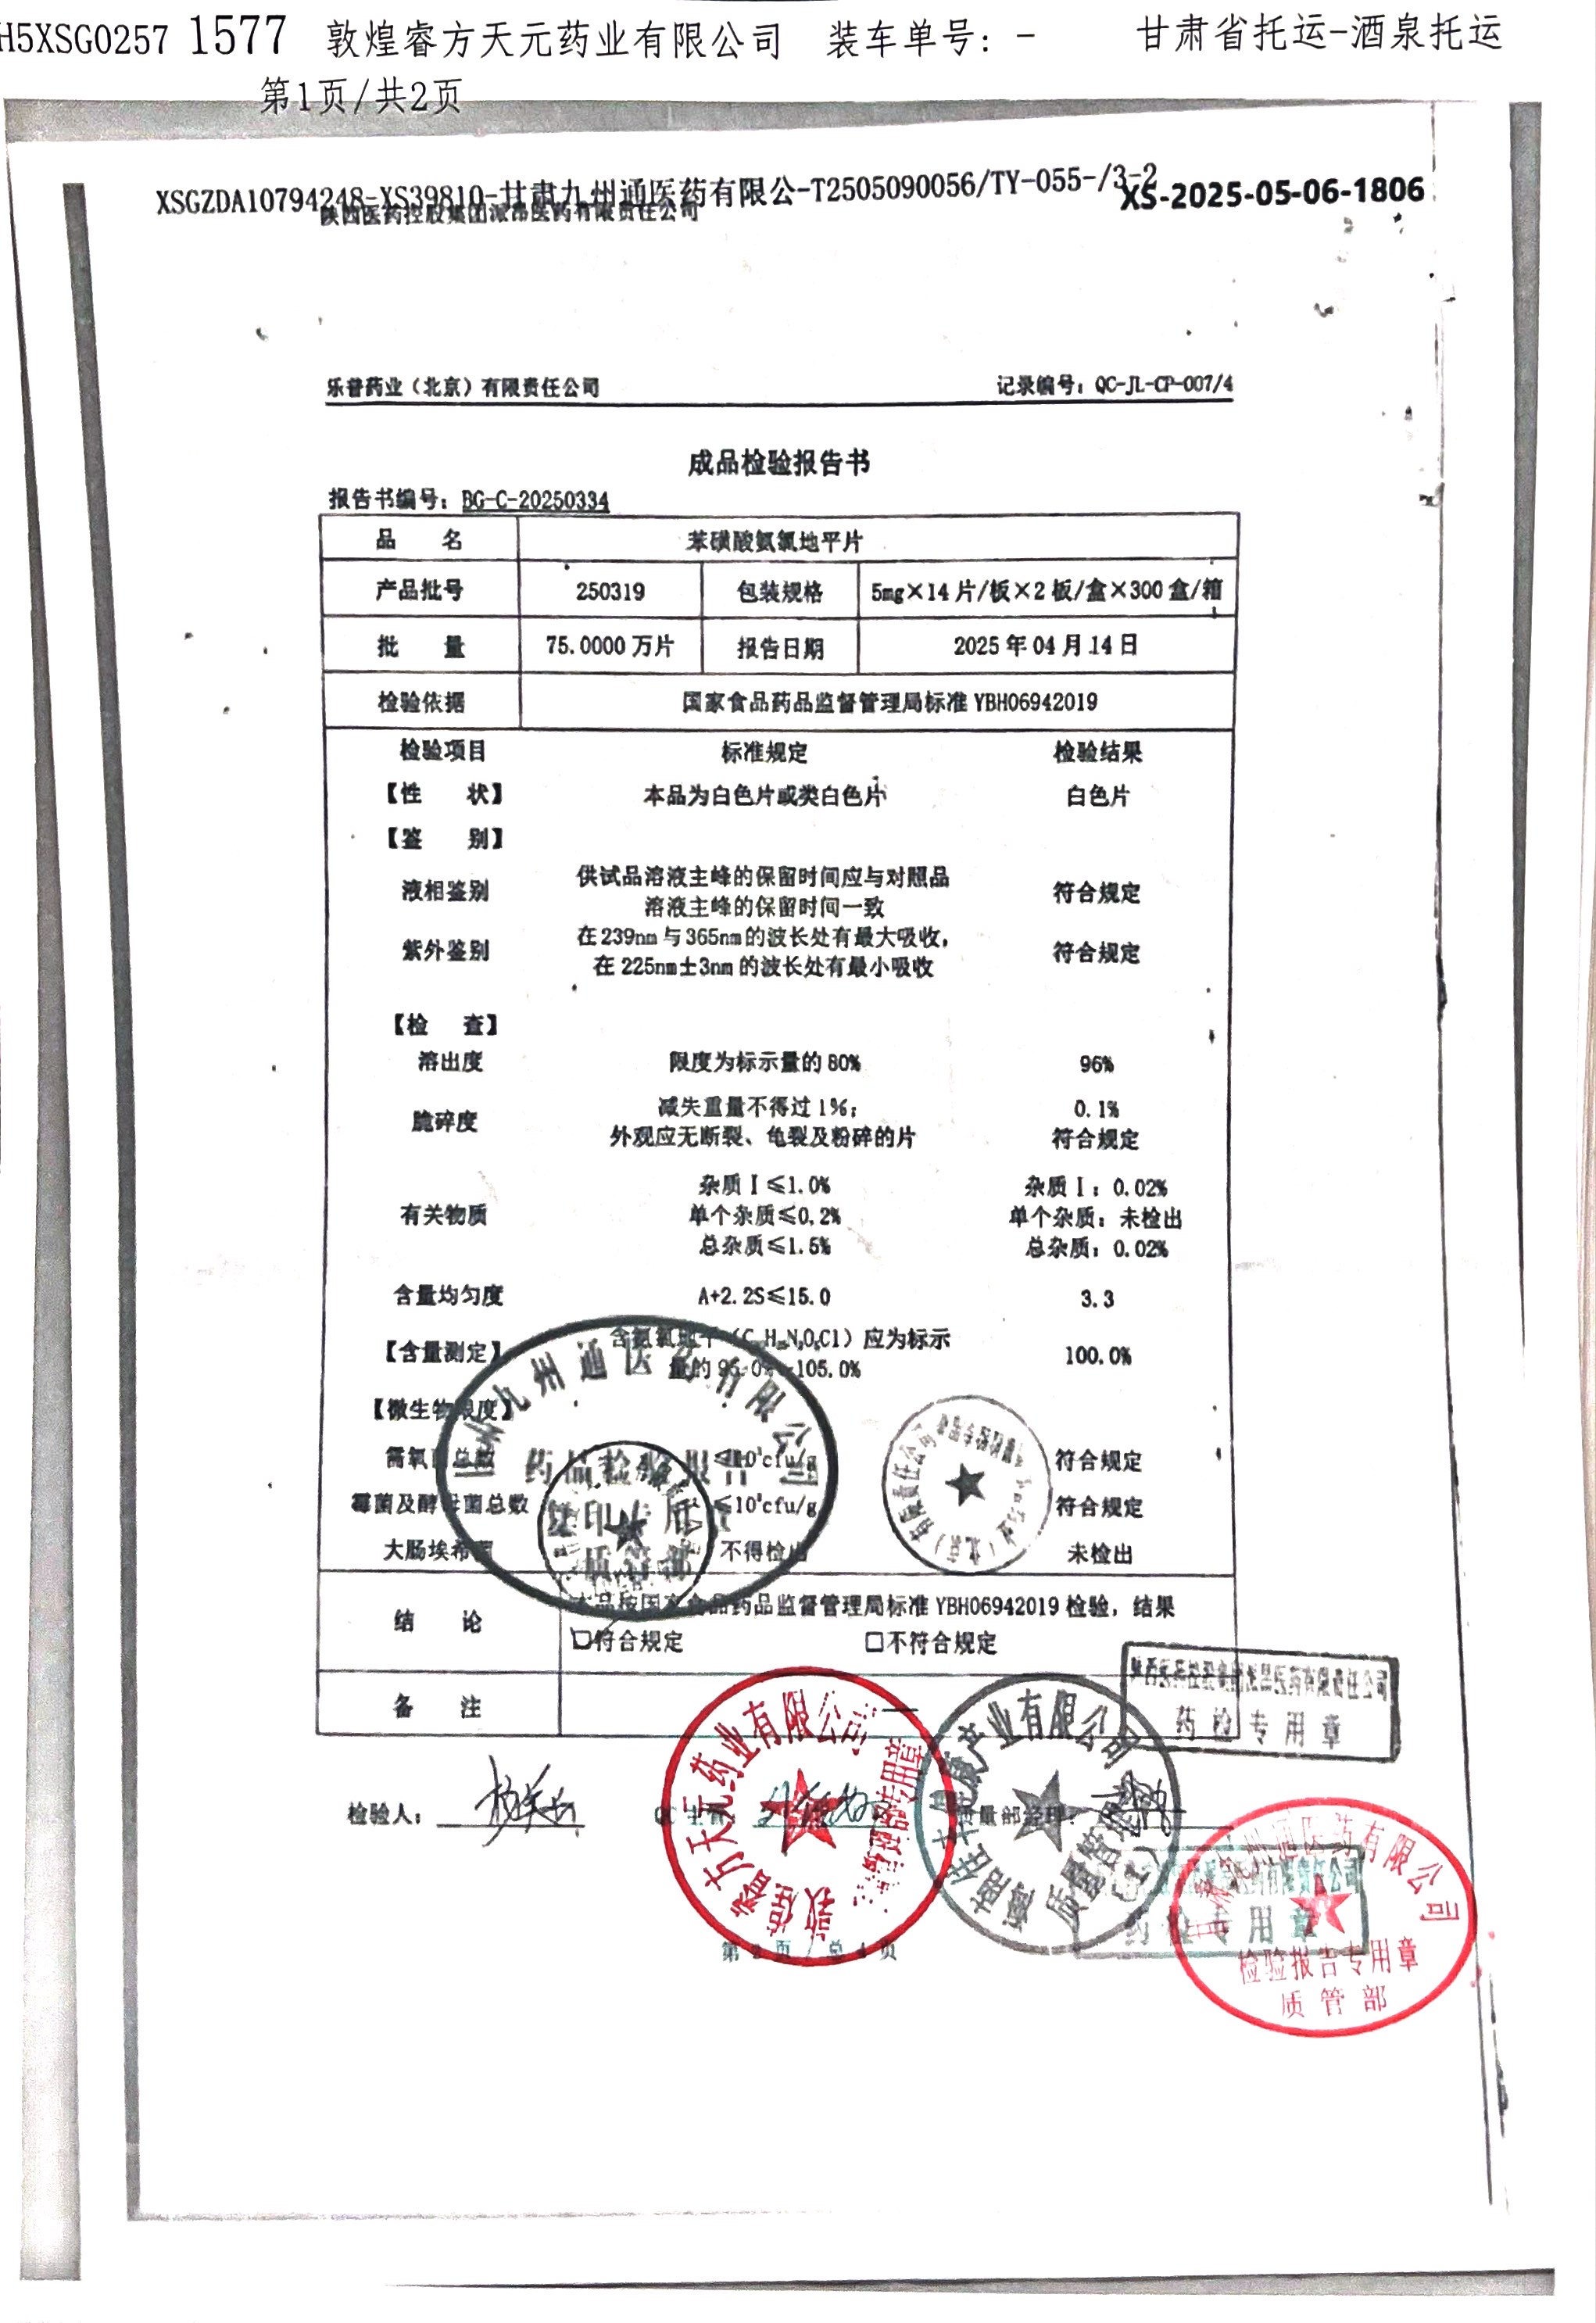 H5XSG0257 1577 敦煌睿方天元药业有限公司 装车单号: - 甘肃省托运-酒泉托运
第1页/共2页
XSGZDA10794248-XS39810-甘肃九州通医药有限公-T2505090056/TY-055-/3-2
XS-2025-05-06-1806
陕西医药控股集团派昂医药有限责任公司
乐普药业（北京）有限责任公司 记录编号：QC-JL-CP-007/4
成品检验报告书
报告书编号：BG-C-20250334
品 名 苯磺酸氨氯地平片
产品批号 250319 包装规格 5mg×14片/板×2板/盒×300盒/箱
批 量 75.0000万片 报告日期 2025年04月14日
检验依据 国家食品药品监督管理局标准YBH06942019
检验项目 标准规定 检验结果
【性 状】 本品为白色片或类白色片 白色片
【鉴 别】
液相鉴别 供试品溶液主峰的保留时间应与对照品溶液主峰的保留时间一致 符合规定
紫外鉴别 在239nm与365nm的波长处有最大吸收，在225nm±3nm的波长处有最小吸收 符合规定
【检 查】
溶出度 限度为标示量的80% 96%
脆碎度 减失重量不得过1%； 0.1%
外观应无断裂、龟裂及粉碎的片 符合规定
有关物质 杂质Ⅰ≤1.0% 杂质Ⅰ：0.02%
单个杂质≤0.2% 单个杂质：未检出
总杂质≤1.5% 总杂质：0.02%
含量均匀度 A+2.2S≤15.0 3.3
【含量测定】 含氨氯地平 应为标示
量的95.0%-105.0% 100.0%
【微生物限度】
需氧菌总数 cfu/g 符合规定
霉菌及酵母菌总数 cfu/g 符合规定
大肠埃希菌 不得检出 未检出
结 论 本品按国家食品药品监督管理局标准YBH06942019检验，结果
□符合规定 □不符合规定
备 注 —
检验人： QC主管 质量部经理：
陕西医药控股集团派昂医药有限责任公司
药检专用章
方天元药业有限公司
产业有限公司
药检专用章
九州通医药有限公司
检验报告专用章
质管部